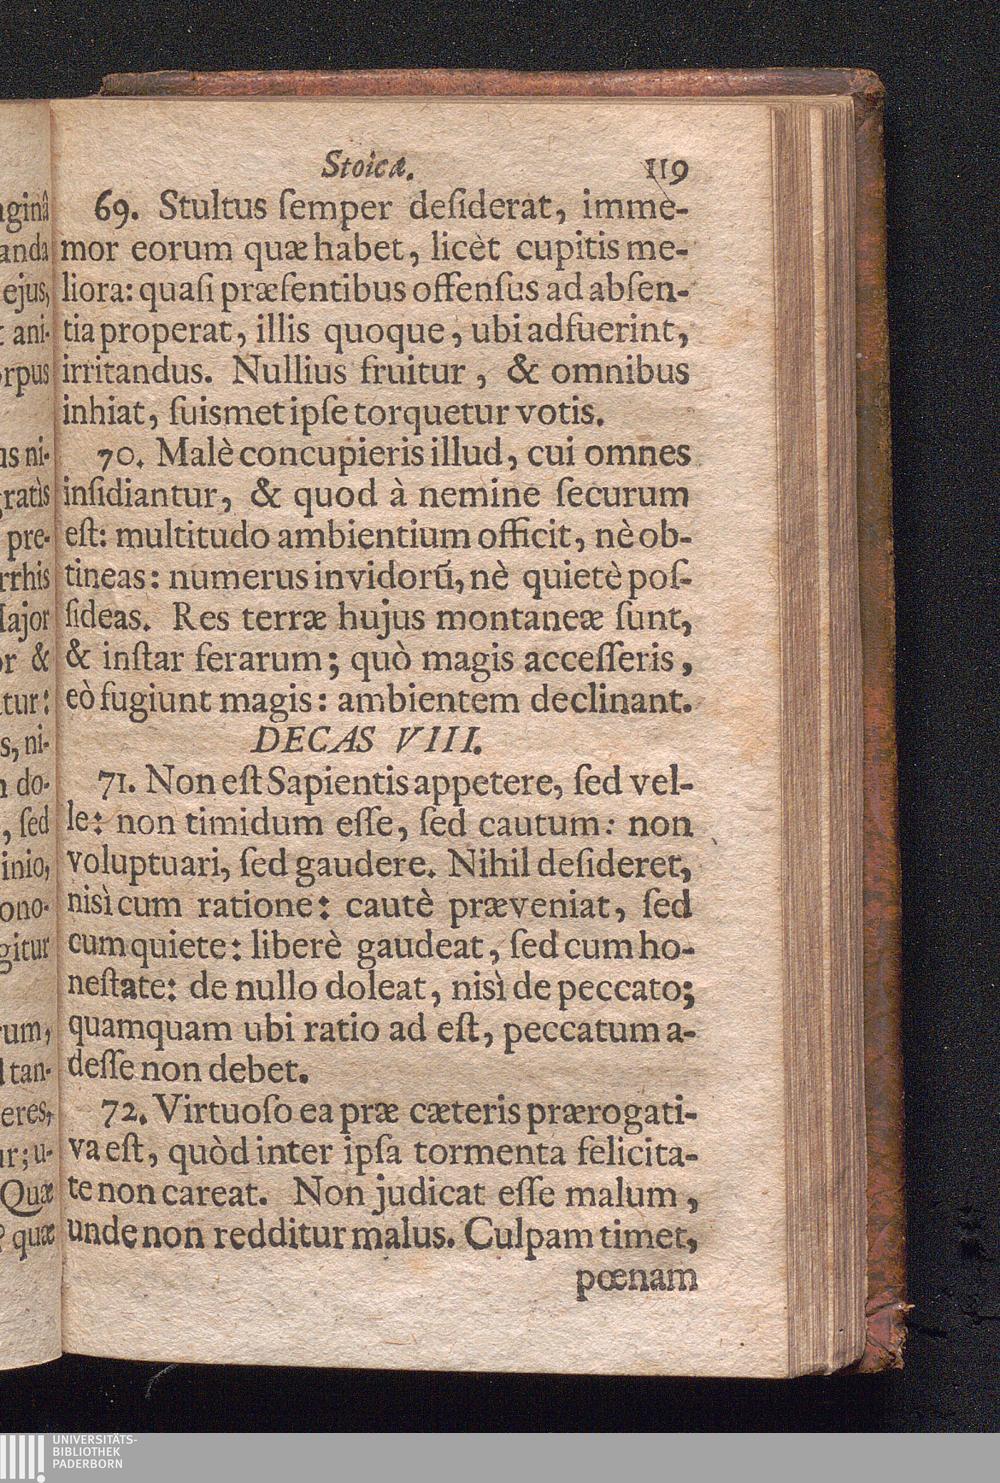 Stoicæ. 119
69. Stultus ſemper deſiderat, imme-
mor eorum quæ habet, licèt cupitis me-
liora: quaſi præſentibus offenſus ad abſen-
tia properat, illis quoque, ubi adfuerint,
irritandus. Nullius fruitur, & omnibus
inhiat, ſuismet ipſe torquetur votis.
70. Malè concupieris illud, cui omnes
inſidiantur, & quod à nemine ſecurum
eſt: multitudo ambientium officit, nè ob-
tineas: numerus invidorũ, nè quietè poſ-
ſideas. Res terræ hujus montaneæ ſunt,
& inſtar ferarum; quò magis acceſſeris,
eò fugiunt magis: ambientem declinant.
DECAS VIII.
71. Non eſt Sapientis appetere, ſed vel-
le: non timidum eſſe, ſed cautum: non
voluptuari, ſed gaudere. Nihil deſideret,
nisì cum ratione: cautè præveniat, ſed
cum quiete: liberè gaudeat, ſed cum ho-
neſtate: de nullo doleat, nisì de peccato;
quamquam ubi ratio ad eſt, peccatum a-
deſſe non debet.
72. Virtuoſo ea præ cæteris prærogati-
va eſt, quòd inter ipſa tormenta felicita-
te non careat. Non judicat eſſe malum,
unde non redditur malus. Culpam timet,
pœnam
aginâ
anda
ejus,
ani-
orpus
us ni-
gratìs
pre-
rrhis
Major
or &
tur:
s, ni-
do-
, ſed
inio,
ono-
gitur
rum,
tan-
eres,
ur; u-
Quæ
? quæ
UNIVERSITÄTS-
BIBLIOTHEK
PADERBORN